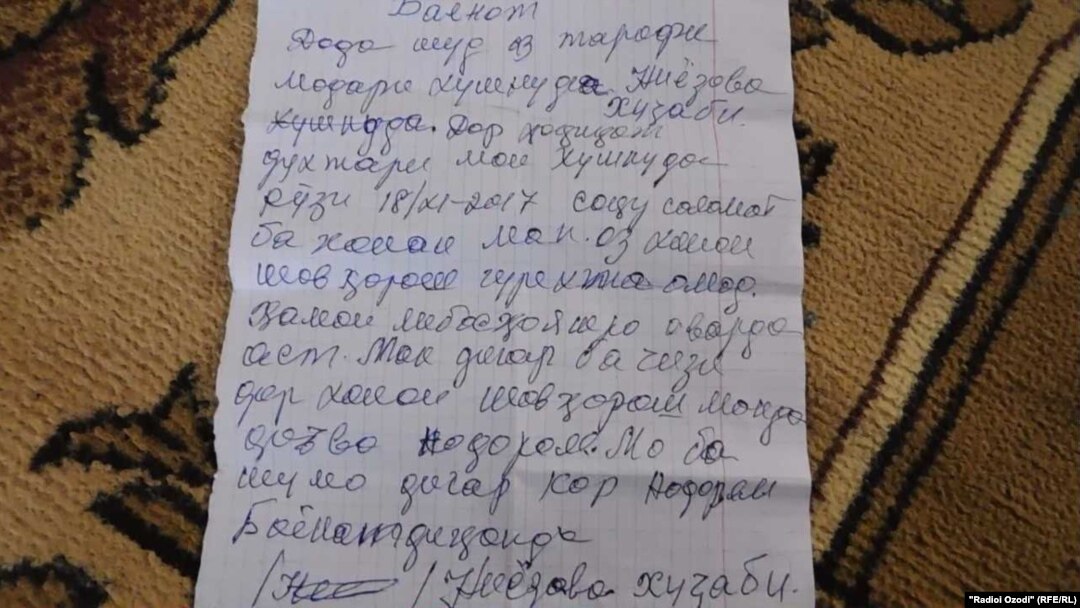 Баёнот
Дода шуд аз тарафи
модари Хушнуда Ниёзова
Хушнуда. Хуҷаби.
Дар ҳақиқат
духтари ман Хушнуда
рӯзи 18/XI-2017 саҳу саломат
ба хонаи ман. аз хонаи
шавҳараш гурехта омад.
Ҳамаи либосҳояшро оварда
аст. Ман дигар ба чизи
дар хонаи шавҳараш монда
даъво надорам. Мо ба
шумо дигар кор надорем
Баёнотдиҳанда
/ / Ниёзова Хуҷаби.
"Radioi Ozodi" (RFE/RL)